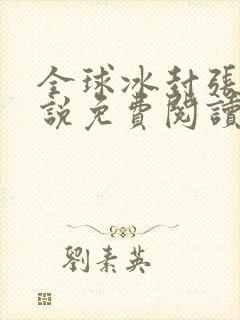 全球冰封張
說免費閱讀
劉素英